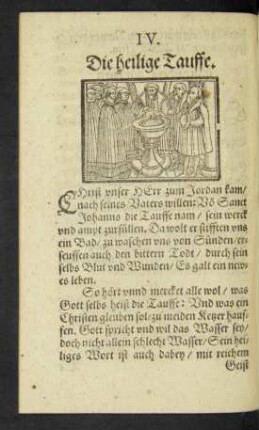 IV.
Die heilige Tauffe.
CHrist vnser HErr zum Jordan kam/
nach seines Vaters willen: Võ Sanct
Johanns die Tauffe nam / sein werck
vnd ampt zurfüllen. Da wolt er stifften vns
ein Bad/ zu waschen vns von Sünden/ er-
seuffen auch den bittern Todt / durch sein
selbs Blut vnd Wunden/ Es galt ein new-
es leben.
So hört vnnd mercket alle wol / was
Gott selbs heist die Tauffe: Vnd was ein
Christen gleuben sol/ zu meiden Ketzer hauf-
fen. Gott spricht vnd wil das Wasser sey/
doch nicht allein schlecht Wasser/ Sein hei-
liges Wort ist auch dabey / mit reichem
Geist